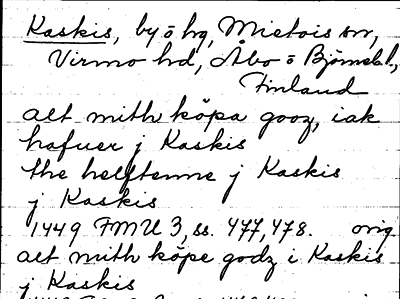 Kaskis, by ō hg, Mietois sn,
Virmo hd, Åbo ō Björneb. l,
Finland
alt mith köpa gooz, iak
hafuer j Kaskis
the helftenne j Kaskis
j Kaskis
1449 FMU 3, ss. 477, 478. orig.
alt mith köpe godz i Kaskis
j Kaskis